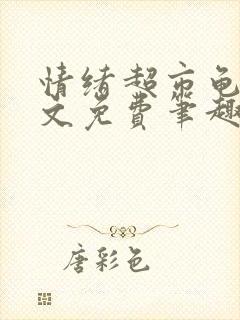 情绪超市龟
文免费笔趣
唐彩色